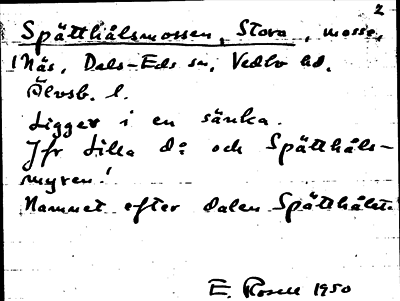 2
Spätthålsmossen, Stora, mosse,
! Näs, Dals-Eds sn, Vedbo hd,
Älvsb. l.
Ligger i en sänka.
Jfr Lilla d:o och Spätthåls-
myren!
Namnet efter dalen Spätthålet.
E. Rosell 1950